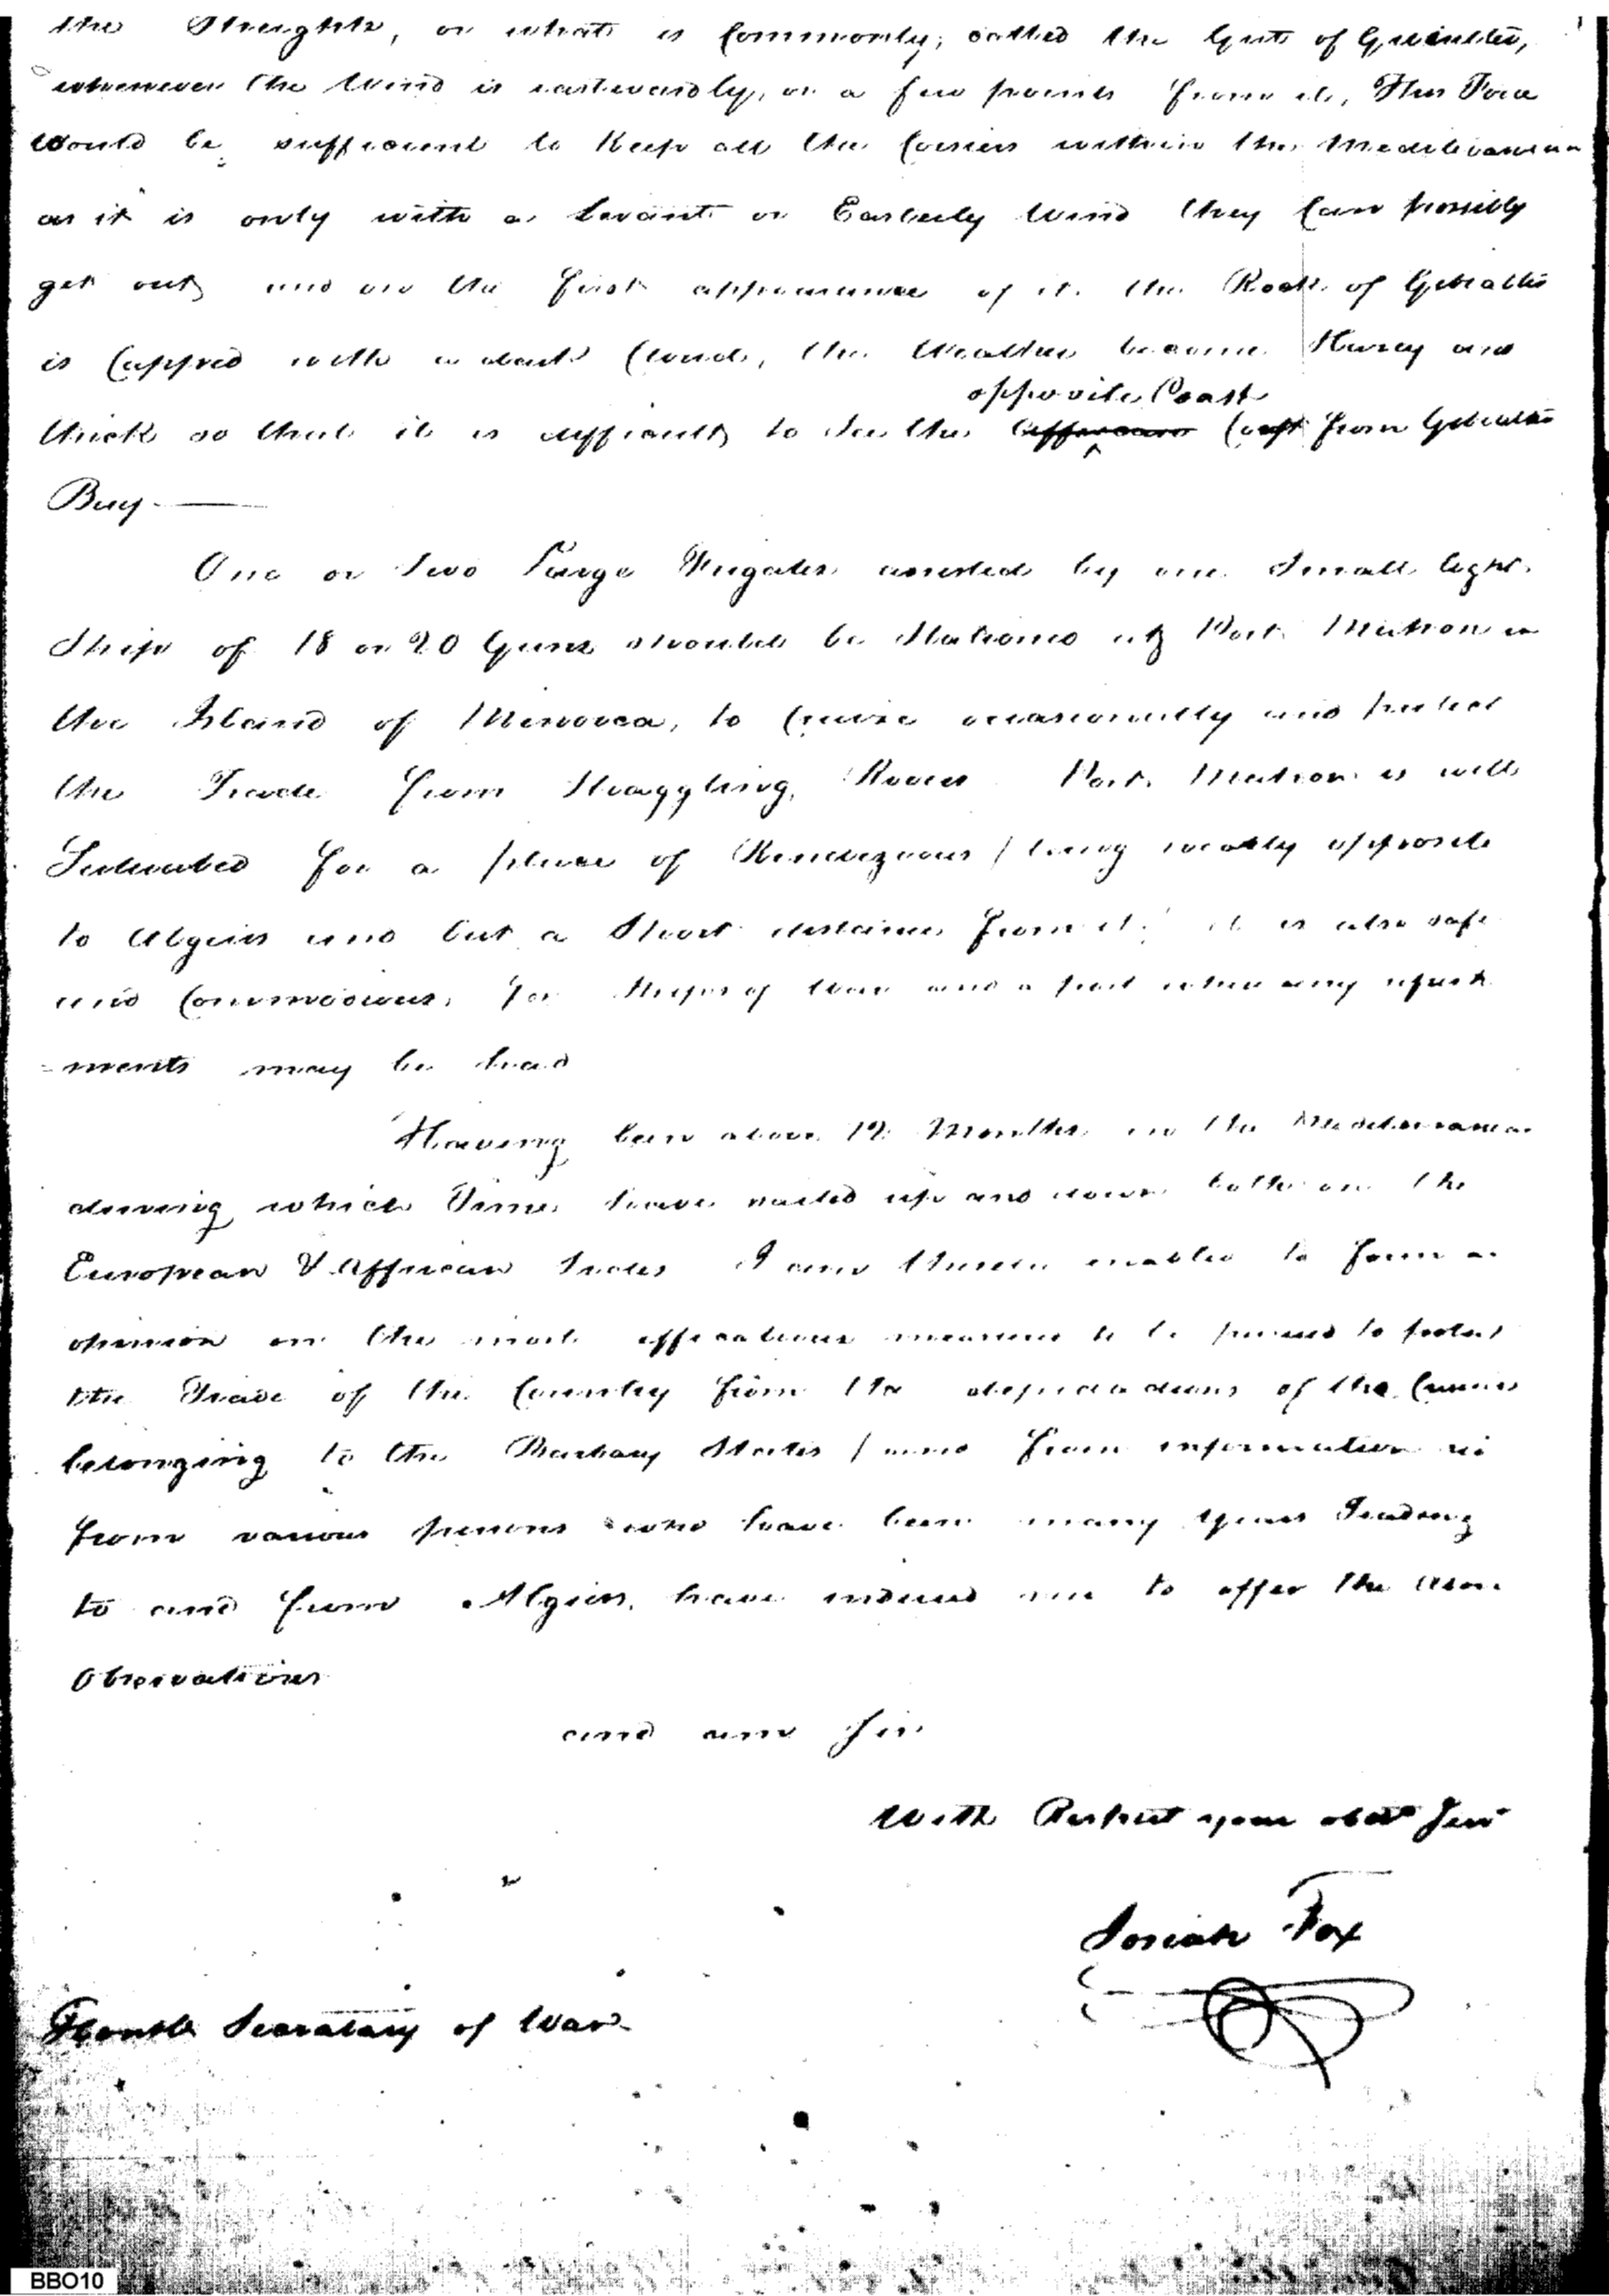 the Streights, or what is Commonly, called the Gut of Gibralter,
whenever the Wind is eastwardly, or a few points from it, This Force
Would be sufficient to Keep all the Corsiers within the Mediteranean
as it is only with a Levant or Easterly Wind they Can possibly
get out, and on the first appearance of it the Rock of Gibralter
is Capped with a dark Cloud, the Weather become Hazey and
opposite Coast
thick so that it is difficult, to see the Coast from Gibralter
Bay.
One or two Large Frigates assisted by one Small light
Ship of 18 or 20 Guns should be Stationed at Port Mahon in
the Island of Minorca, to Cruise occasionally and protect
the Trade from Straggling, Rovers Port Mahon is well
Situated for a place of Rendezvous / being nearly opposite
to Algiers and but a Short distance from it / it is also safe
and Commodious, for Ships of War and a port where any refresh
-ments may be had
Having been above 12 Months in the Mediteranean
during which Time have sailed up and down both on the
European & Affrican Sides I am therein enabled to form an
opinion on the most efficatious measures to be pursued to protect
the Trade of the Country from the depredations of the Cruisers
belonging to the Barbary States / and from information
from various persons who have been many Years Trading
to and from Algiers, have induced me to offer the above
Observations
and am Sir
With Respect your obdt Servt
Josiah Fox
Honble Secratary of War
BBO10